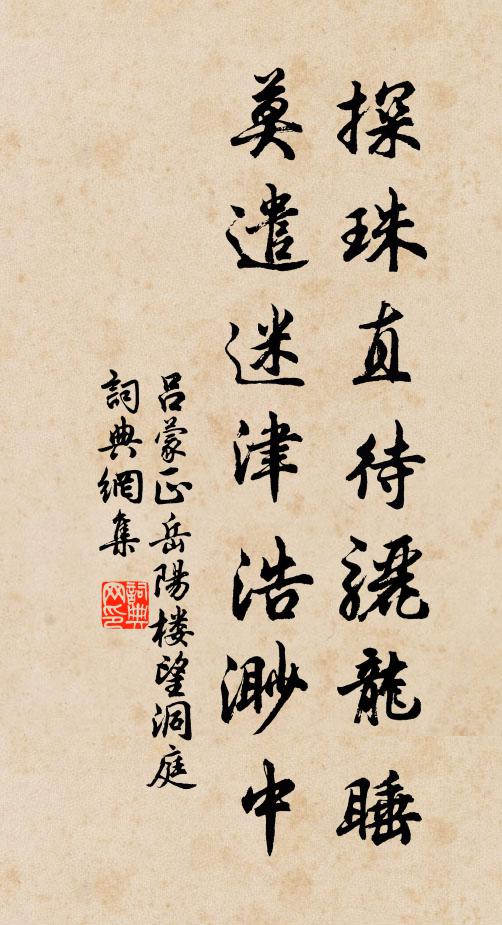 探珠直待驪龍睡
莫遣迷津浩渺中
呂蒙正岳陽楼望洞庭
詞典網集
詞典
网印